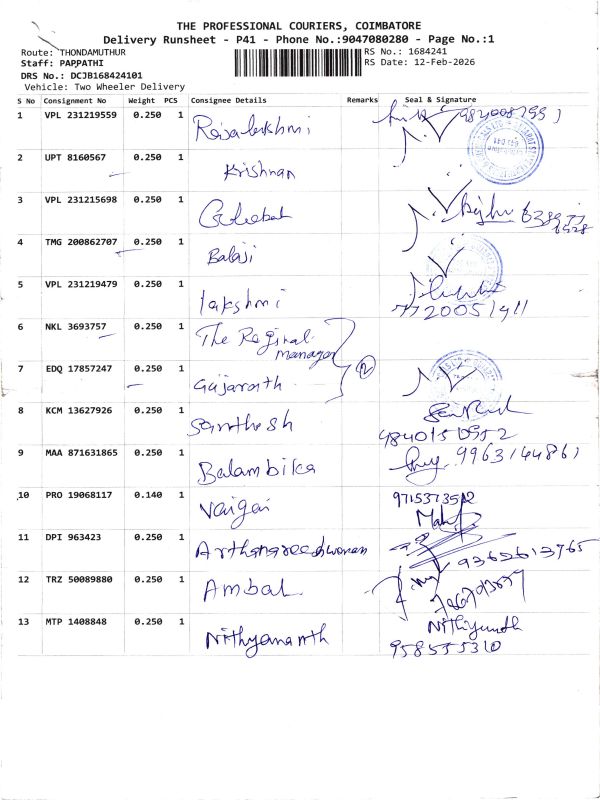 THE PROFESSIONAL COURIERS, COIMBATORE
Delivery Runsheet - P41 - Phone No.:9047080280 - Page No.:1
Route: THONDAMUTHUR RS No.: 1684241
Staff: PAPPATHI RS Date: 12-Feb-2026
DRS No.: DCJB168424101
Vehicle: Two Wheeler Delivery
S No Consignment No Weight PCS Consignee Details Remarks Seal & Signature
1 VPL 231219559 0.250 1 Rajalakshmi
2 UPT 8160567 0.250 1 Krishnan
3 VPL 231215698 0.250 1
4 TMG 200862707 0.250 1 Balaji
5 VPL 231219479 0.250 1 lakshmi
7720051911
6 NKL 3693757 0.250 1 The Reginal
manager
7 EDQ 17857247 0.250 1 Gujarath 2
8 KCM 13627926 0.250 1 Santhesh
9840150952
9 MAA 871631865 0.250 1 Balambika 9963144861
10 PRO 19068117 0.140 1 Vaigai
11 DPI 963423 0.250 1 9365613765
12 TRZ 50089880 0.250 1 Ambal
13 MTP 1408848 0.250 1 Nithyananth
958555310